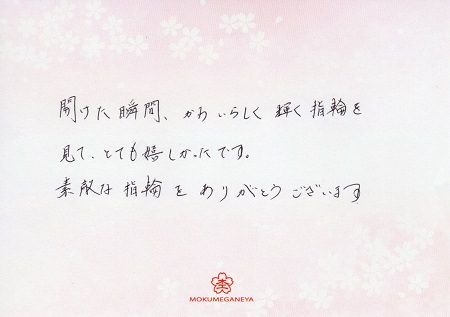 開けた瞬間、かわいらしく輝く指輪を
見て、とても嬉しかったです。
素敵な指輪をありがとうございます
MOKUMEGANEYA